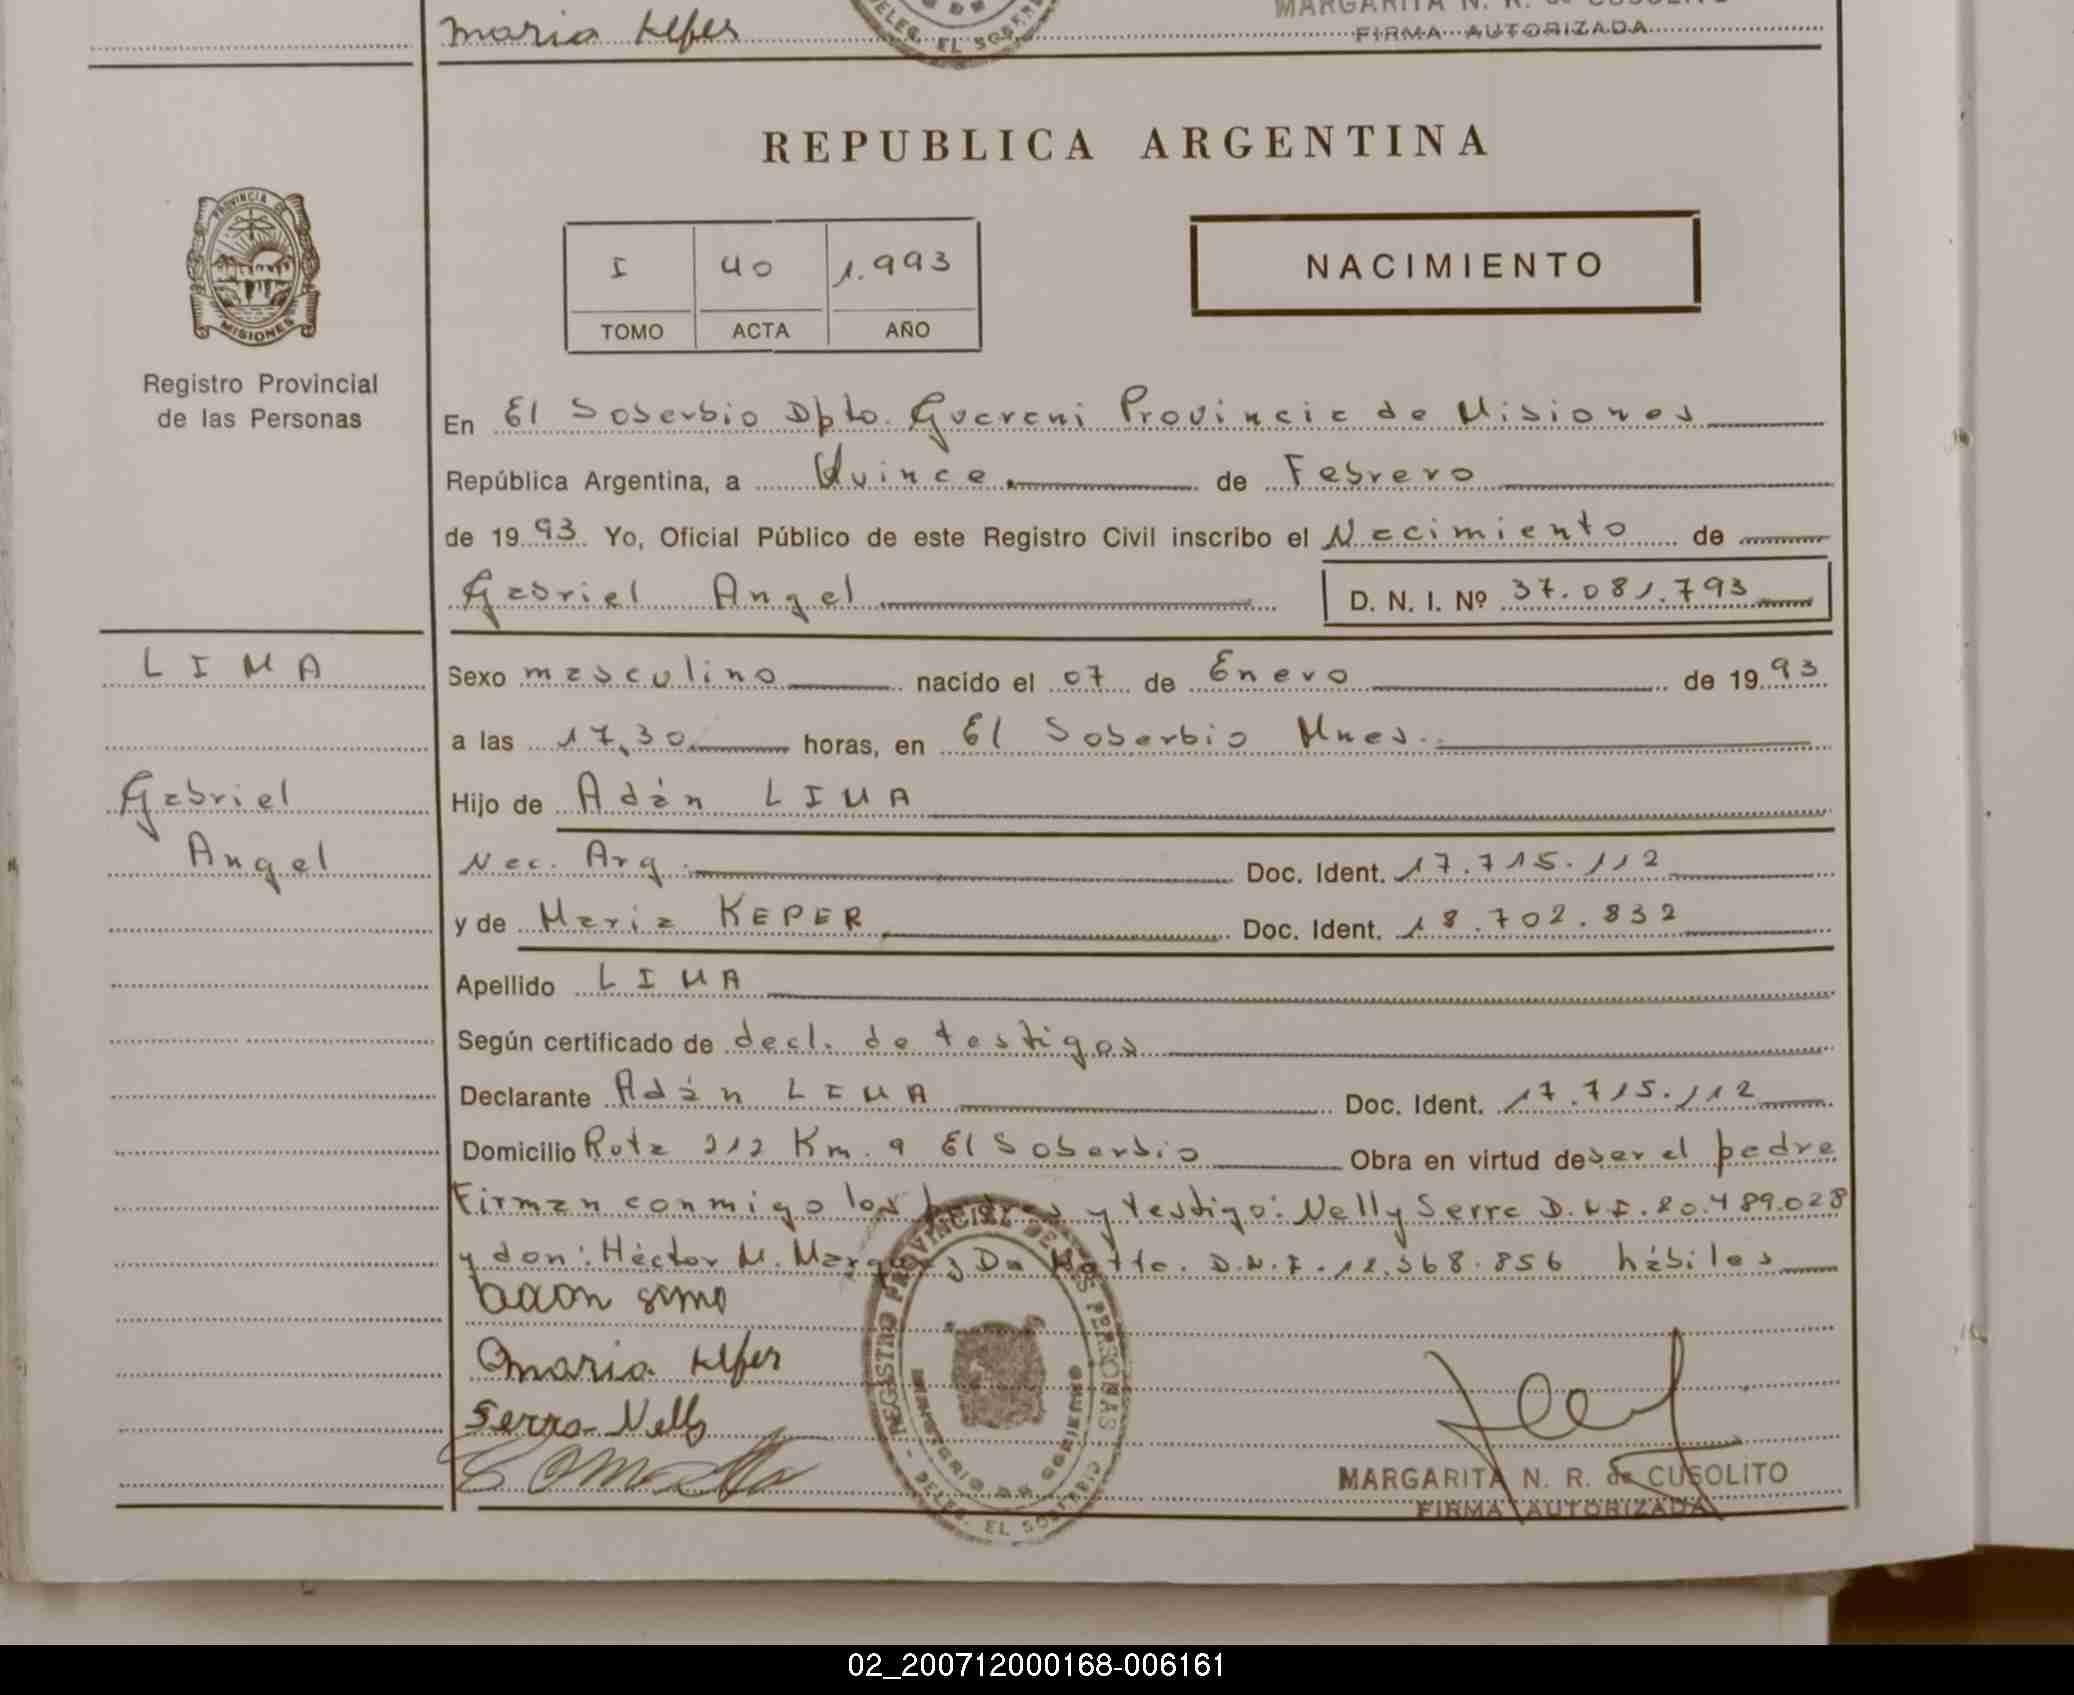 Maria Kefer
DELEG. EL SOBERB
MARGARITA N. R. de CUSOLITO
FIRMA AUTORIZADA
REPUBLICA ARGENTINA
PROVINCIA DE
MISIONES
I 40 1.993
TOMO ACTA AÑO
NACIMIENTO
Registro Provincial
de las Personas
En El Soberbio Dpto. Guarani Provincia de Misiones
República Argentina, a Quince de Febrero
de 1993 Yo, Oficial Público de este Registro Civil inscribo el Nacimiento de
Gabriel Angel D. N. I. Nº 37.081.793
LIMA
Gabriel
Angel
Sexo masculino nacido el 07 de Enero de 1993
a las 17,30 horas, en El Soberbio Mnes.
Hijo de Adán LIMA
Nac. Arg. Doc. Ident. 17.715.112
y de Maria KEPER Doc. Ident. 18.702.832
Apellido LIMA
Según certificado de decl. de testigos
Declarante Adán LIMA Doc. Ident. 17.715.112
Domicilio Ruta 212 Km. 9 El Soberbio Obra en virtud de ser el padre
Firman conmigo los y testigo: Nelly Serra D.N.I. 20.489.028
y don: Héctor M. Da Motta. D.N.I. 12.368.856 hábiles
Maria Kefer
Serra Nelly
REGISTRO PROVINCIAL DE LAS PERSONAS
MINISTERIO DE GOBIERNO
DELEG. EL SOBERBIO
MARGARITA N. R. de CUSOLITO
FIRMA AUTORIZADA
02_200712000168-006161